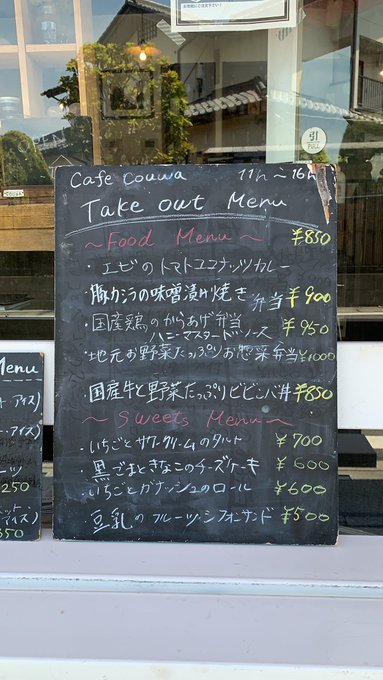 引
PULL
Cafe couwa 11h～16h
Take out Menu
～Food Menu～ ¥850
・エビのトマトココナッツカレー
・豚カシラの味噌漬け焼き弁当 ¥900
・国産鶏のからあげ弁当 ¥950
ハニーマスタードソース
・地元お野菜たっぷりお惣菜弁当 ¥1000
・国産牛と野菜たっぷりビビンバ丼 ¥850
～Sweets Menu～
・いちごとサワークリームのタルト ¥700
・黒ごまときなこのチーズケーキ ¥600
・いちごとガナッシュのロール ¥600
・豆乳のフルーツ・シフォンサンド ¥500
Menu
アイス)
アイス)
250
アイス)
350